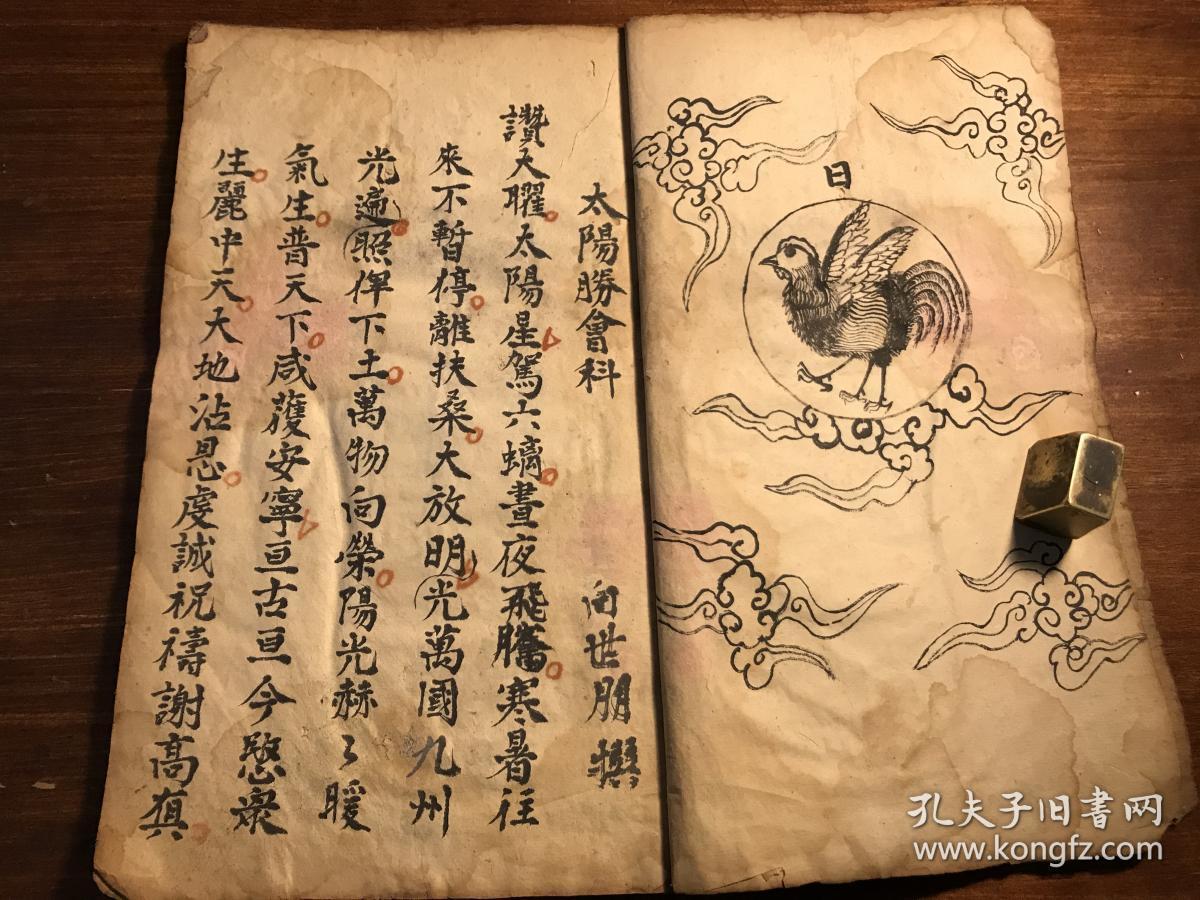 日
太陽勝會科 向世朋撰
讚天曜太陽星駕六螭晝夜飛騰寒暑往
來不暫停離扶桑大放明光萬國九州
光遍照俾下土萬物向榮陽光赫々暖
氣生普天下咸獲安寧亘古亘今愍衆
生麗中天大地沾恩虔誠祝禱謝高真
孔夫子旧书网
www.kongfz.com